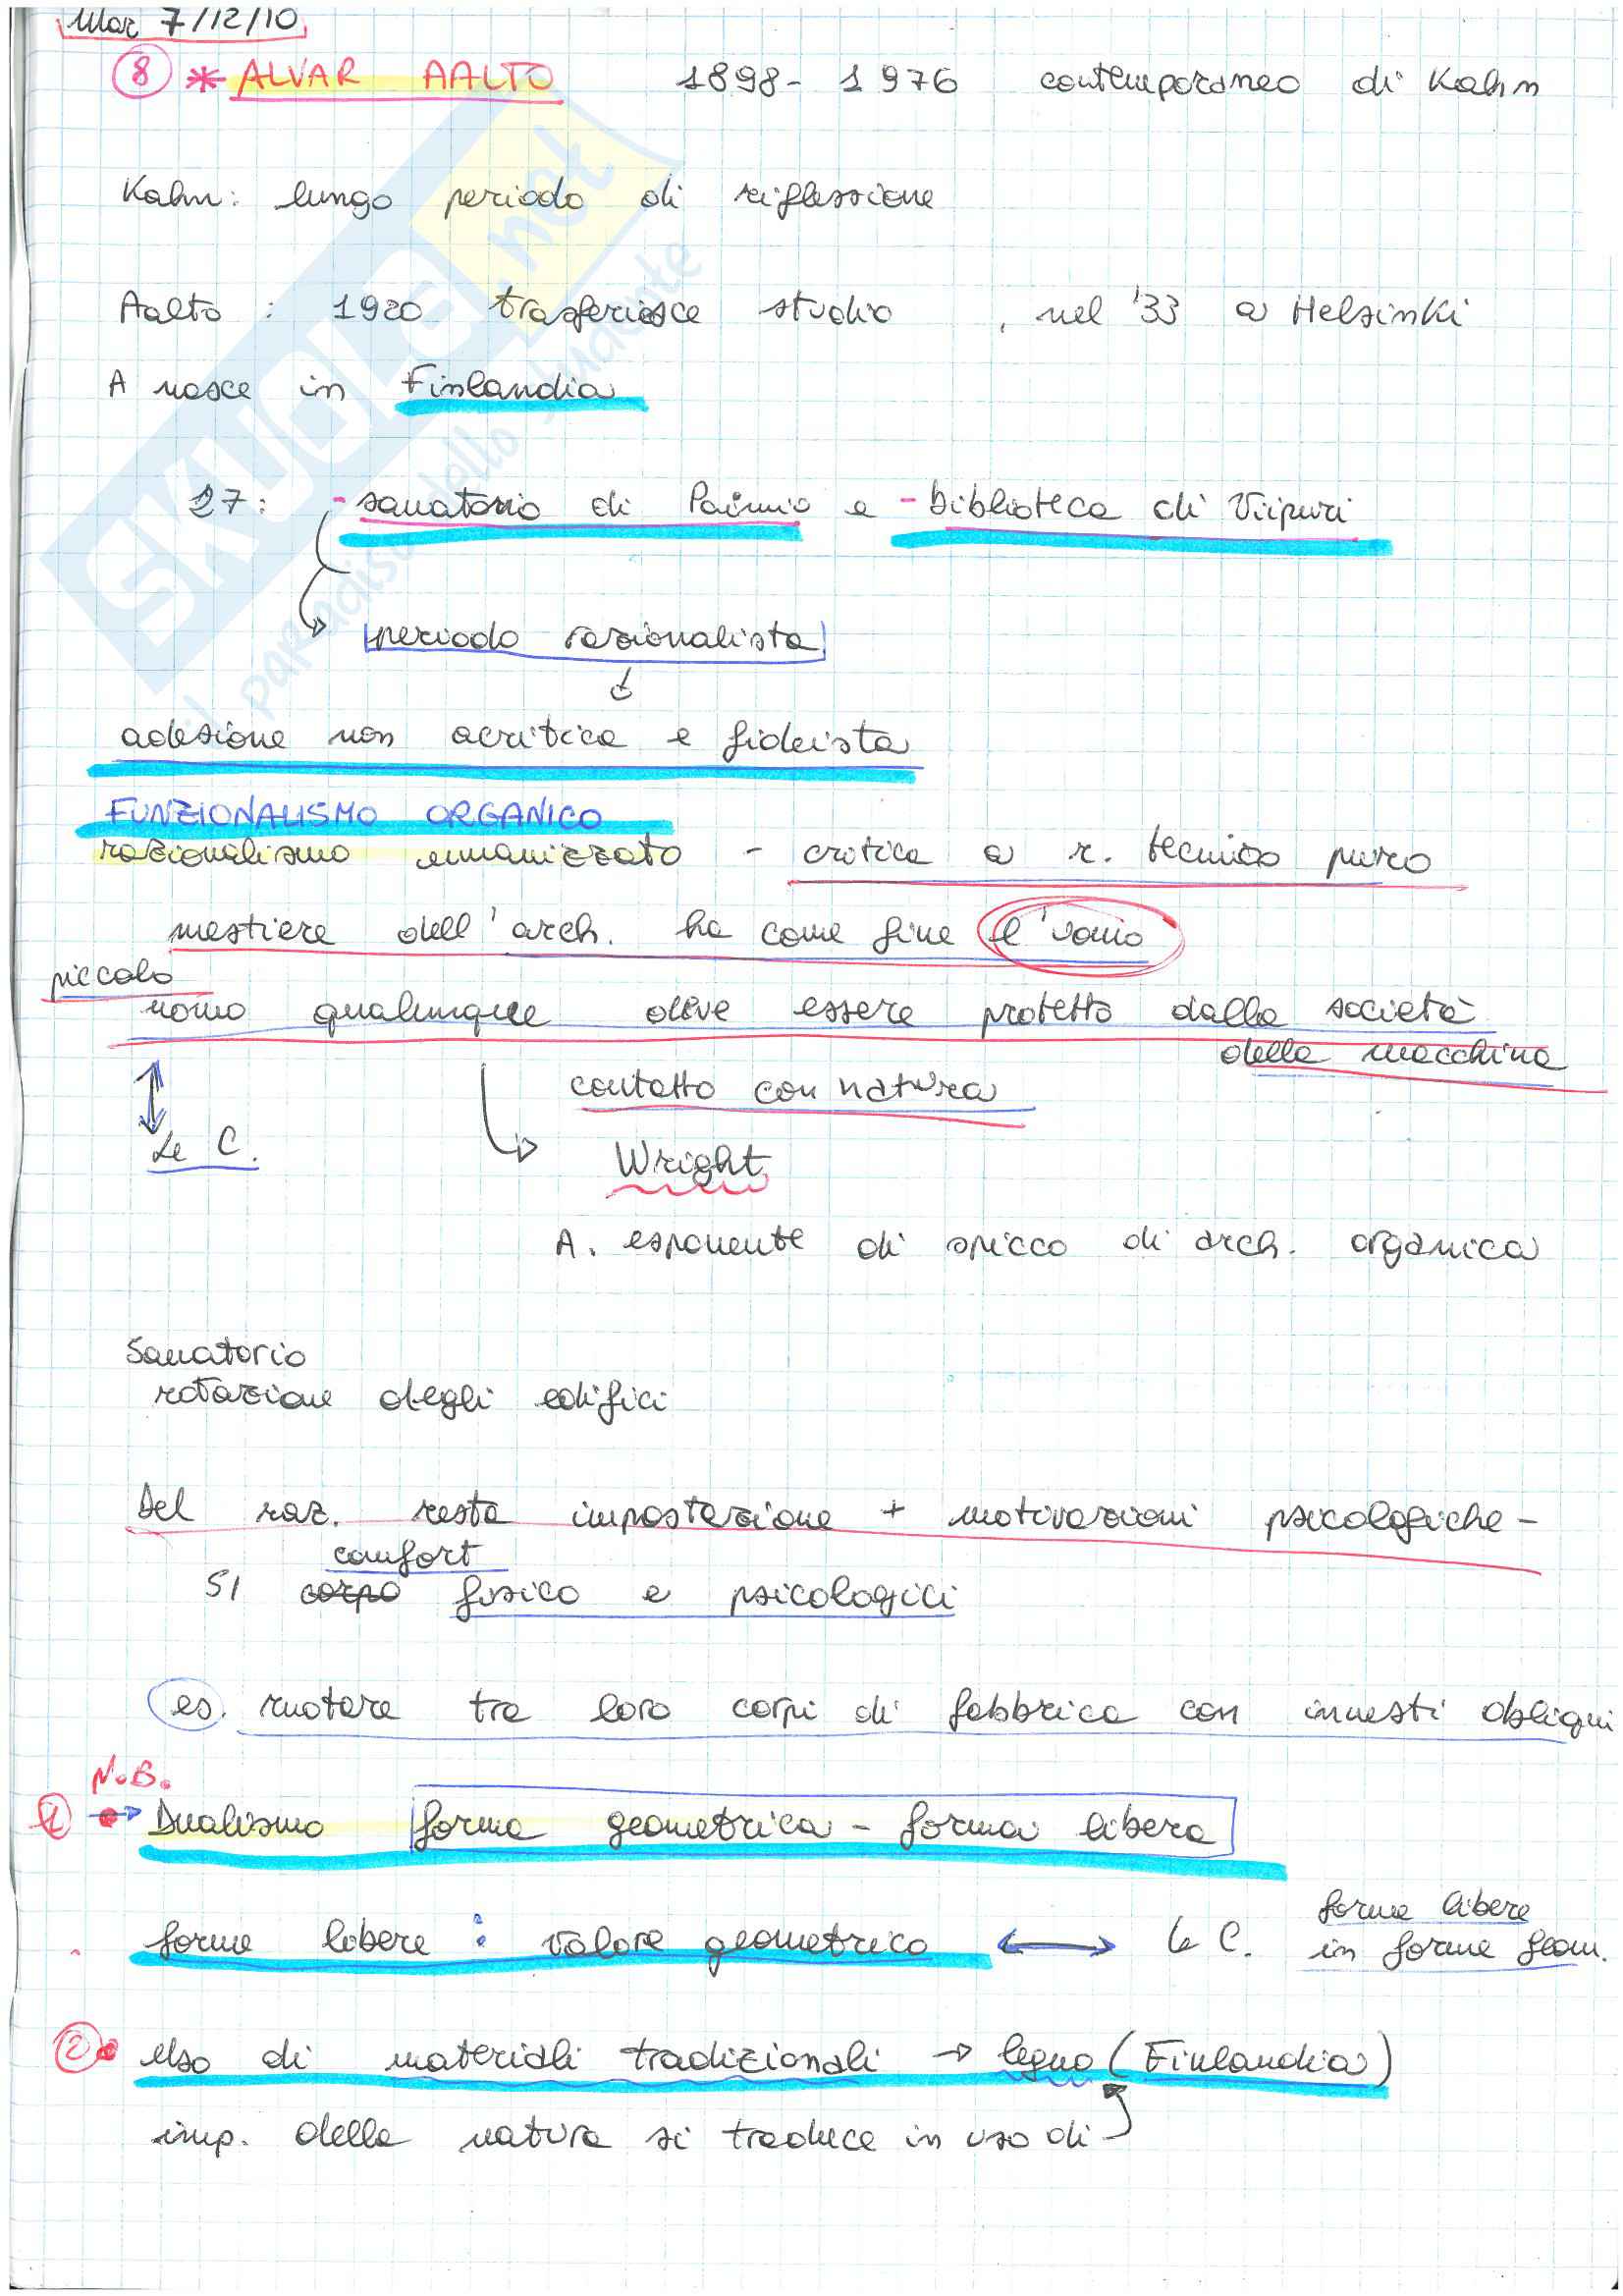 Mar 7/12/10
8 * ALVAR AALTO 1898-1976 contemporaneo di Kahn
Kahn: lungo periodo di riflessione
Aalto: 1920 trasferisce studio, nel '33 a Helsinki
A nasce in Finlandia
27: - sanatorio di Paimio e - biblioteca di Viipuri
periodo razionalista
adesione non acritica e fideista
FUNZIONALISMO ORGANICO
razionalismo umanizzato - critica a r. tecnico puro
mestiere dell'arch. ha come fine l'uomo
piccolo
uomo qualunque deve essere protetto dalla società
della macchina
contatto con natura
Le C.
Wright
A. esponente di spicco di arch. organica
Sanatorio
rotazione degli edifici
Del raz. resta impostazione + motivazioni psicologiche -
comfort
SI corpo fisico e psicologici
es. ruotare tra loro corpi di fabbrica con innesti obliqui
N.B.
1 → Dualismo forma geometrica - forma libera
forme libere: valore geometrico ↔ Le C. forme libere
in forme geom.
2 • uso di materiali tradizionali → legno (Finlandia)
imp. della natura si traduce in uso di
SKUOLA.net
il paradiso dello studente